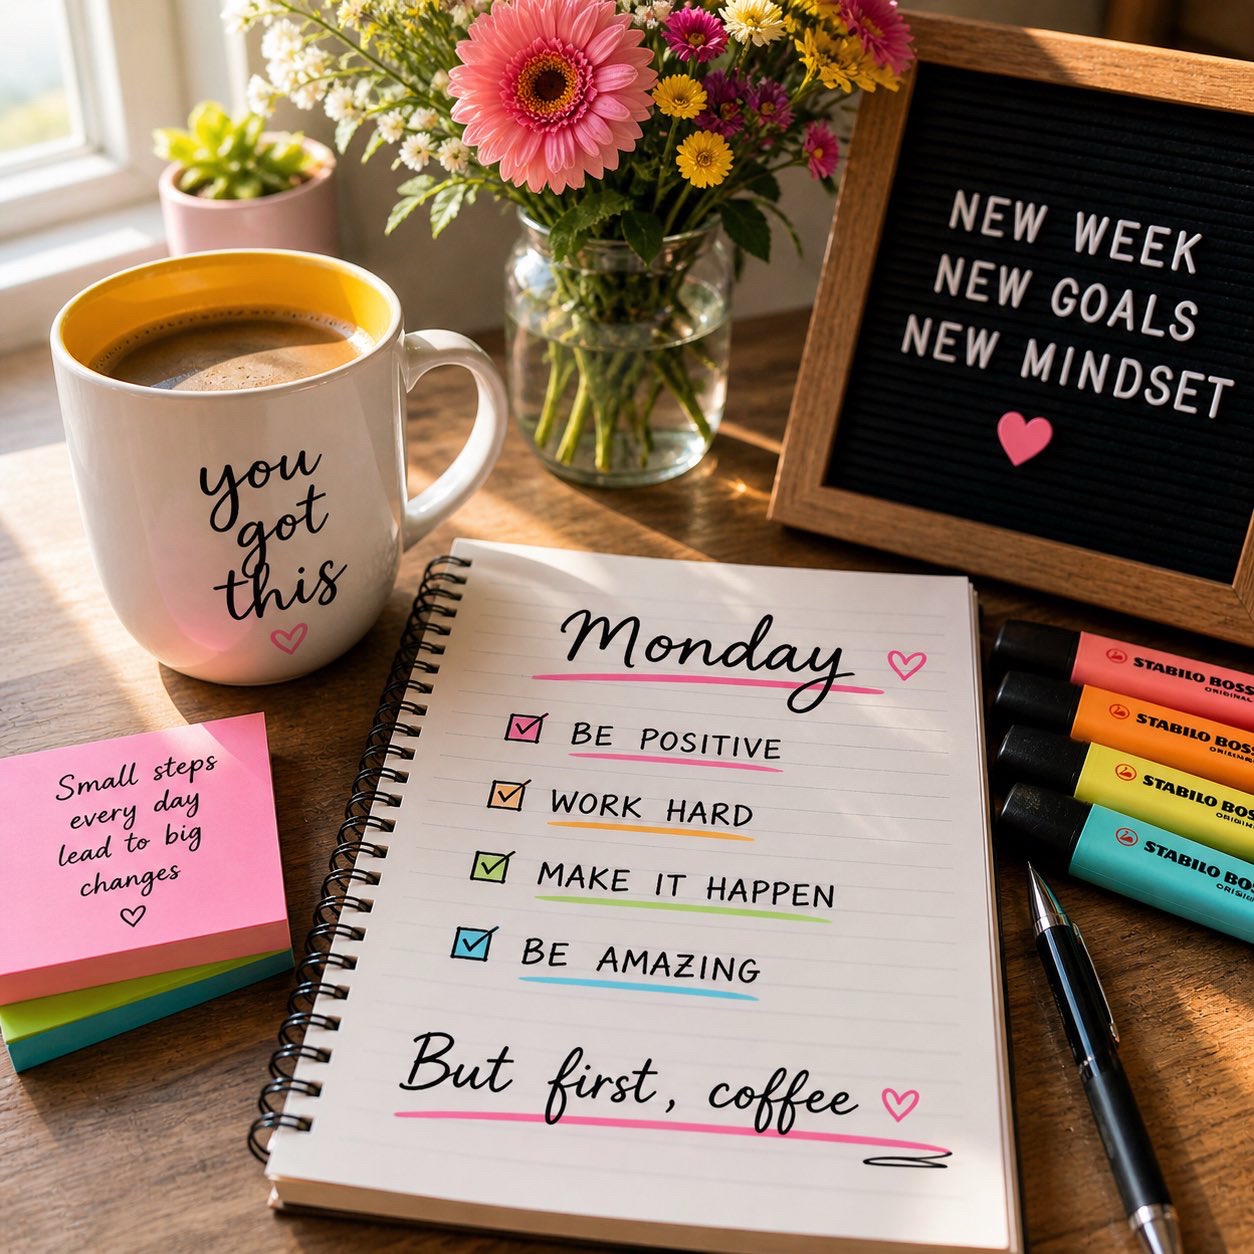 NEW WEEK
NEW GOALS
NEW MINDSET
you
got
this
Monday
BE POSITIVE
WORK HARD
MAKE IT HAPPEN
BE AMAZING
But first, coffee
Small steps
every day
lead to big
changes
STABILO BOSS
ORIGINAL
STABILO BOSS
ORIGINAL
STABILO BOSS
ORIGINAL
STABILO BOS
ORIGINAL